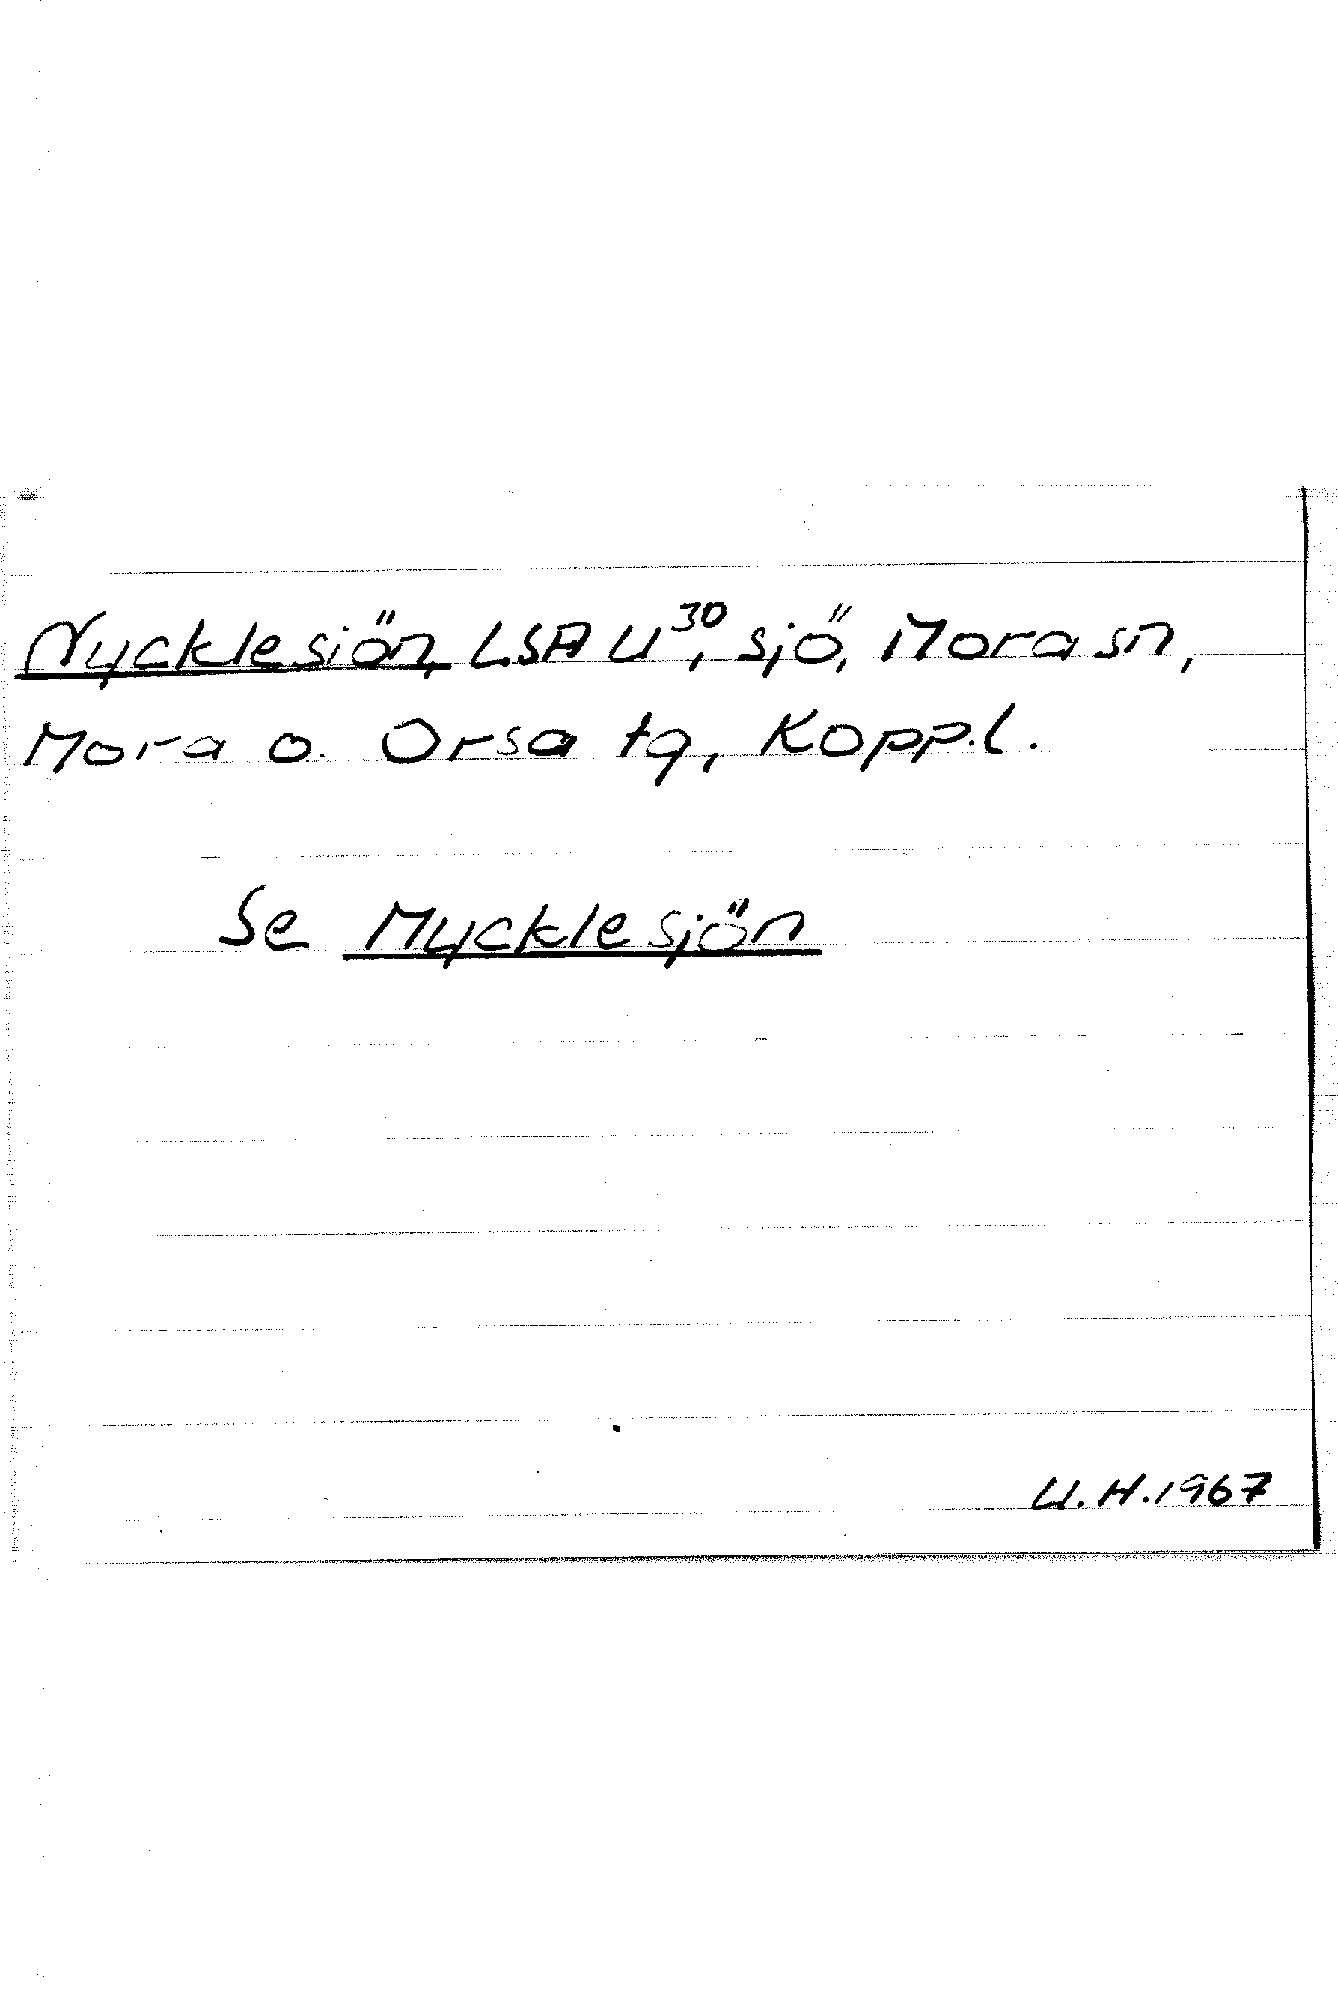 Nycklesjön, LSA U³⁰, sjö, Mora sn,
Mora o. Orsa tg, Kopp.l.
Se Mycklesjön
U.H. 1967